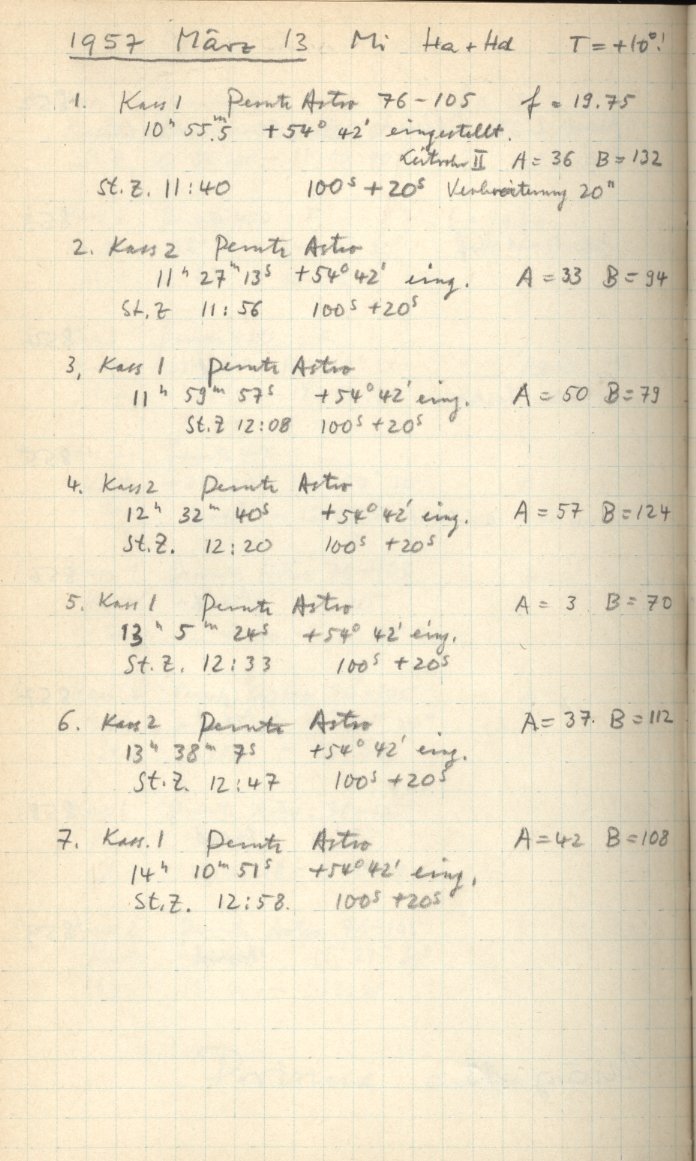 1957 März 13 Mi Ha + Hd T = +10°!
1. Kass 1 Perutz Astro 76-105 f = 19.75
10ʰ 55.ᵐ5 +54° 42' eingestellt.
Leitrohr II A = 36 B = 132
St.Z. 11:40 100ˢ + 20ˢ Verbreiterung 20"
2. Kass 2 Perutz Astro
11ʰ 27ᵐ 13ˢ +54° 42' eing. A = 33 B = 94
St.Z 11:56 100ˢ + 20ˢ
3, Kass 1 Perutz Astro
11ʰ 59ᵐ 57ˢ +54° 42' eing. A = 50 B = 79
St.Z 12:08 100ˢ + 20ˢ
4. Kass 2 Perutz Astro
12ʰ 32ᵐ 40ˢ +54° 42' eing. A = 57 B = 124
St.Z. 12:20 100ˢ + 20ˢ
5. Kass 1 Perutz Astro A = 3 B = 70
13ʰ 5ᵐ 24ˢ +54° 42' eing.
St.Z. 12:33 100ˢ + 20ˢ
6. Kass 2 Perutz Astro A = 37. B = 112
13ʰ 38ᵐ 7ˢ +54° 42' eing.
St.Z. 12:47 100ˢ + 20ˢ
7. Kass. 1 Perutz Astro A = 42 B = 108
14ʰ 10ᵐ 51ˢ +54° 42' eing.
St.Z. 12:58. 100ˢ + 20ˢ